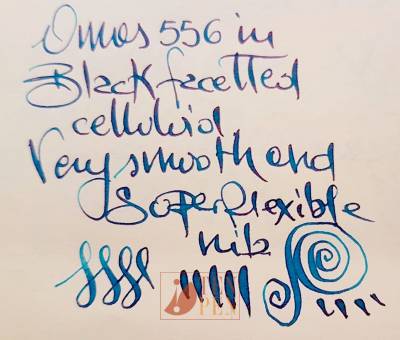 Omas 556 in
Black facetted
celluloid
Very smooth and
Superflexible
nib